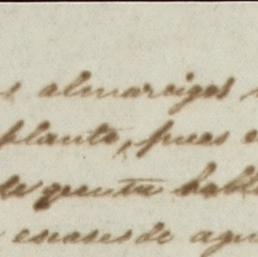 s almarcigas
planta, pues e
de quenta habl
escases de agu